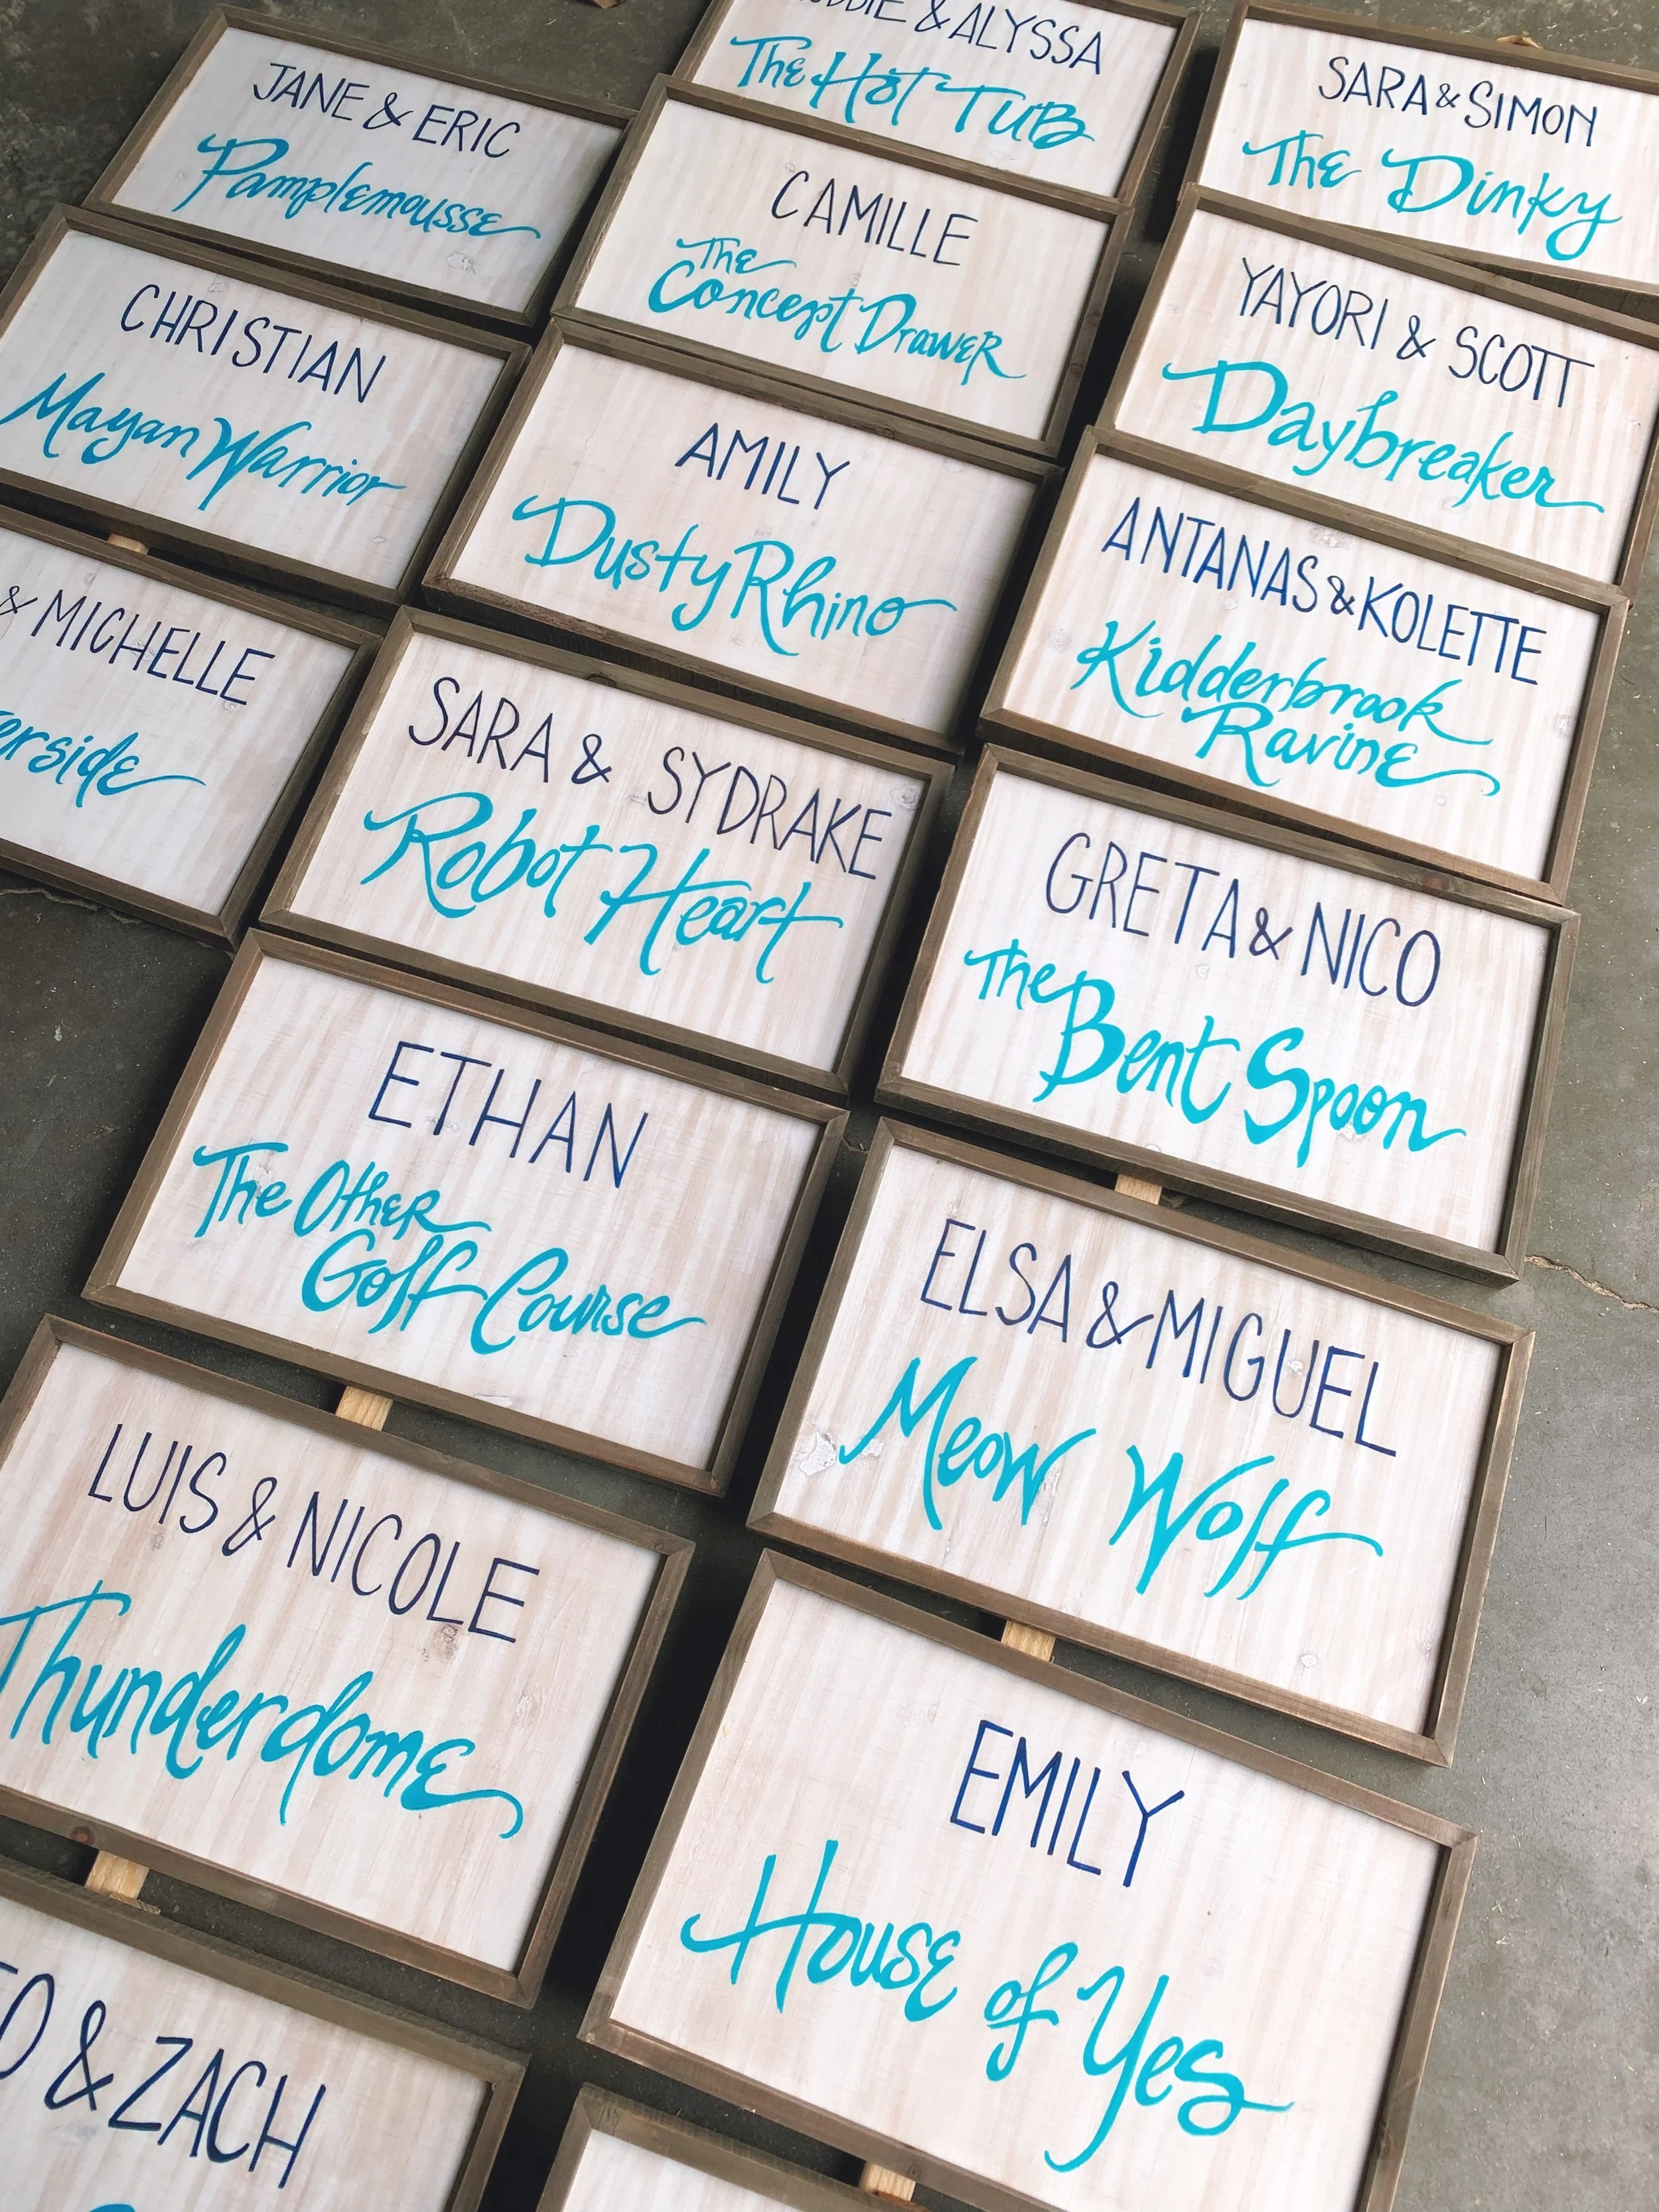 & ALYSSA
The Hot Tub
SARA & SIMON
The Dinky
JANE & ERIC
Pamplemousse
CAMILLE
The
Concept Drawer
YAYORI & SCOTT
Daybreaker
CHRISTIAN
Mayan Warrior
AMILY
Dusty Rhino
ANTANAS & KOLETTE
Kidderbrook
Ravine
& MICHELLE
SARA & SYDRAKE
Robot Heart
GRETA & NICO
The
Bent Spoon
ETHAN
The Other
Golf Course
ELSA & MIGUEL
Meow Wolf
LUIS & NICOLE
Thunderdome
EMILY
House of Yes
& ZACH